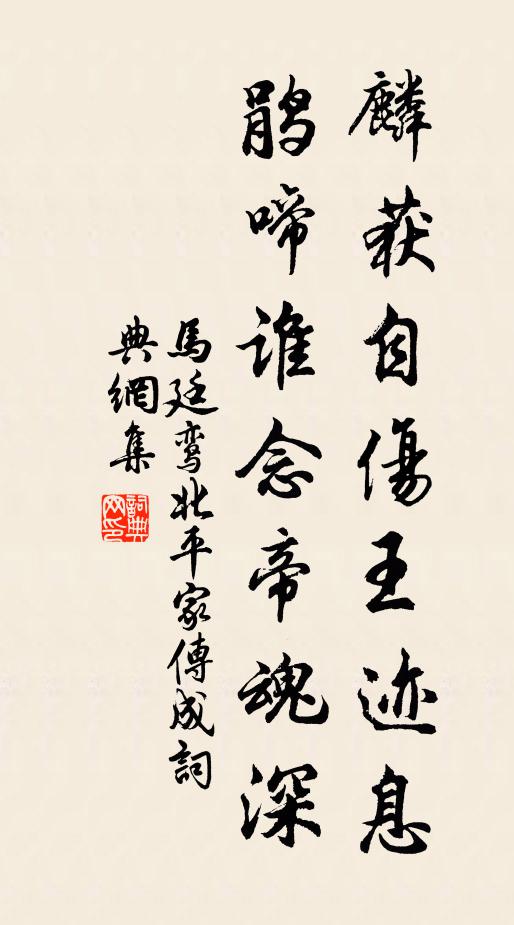 麟获自傷王迹息
鹃啼谁念帝魂深
馬廷鸾北平家傳成詞
典網集
詞典網印